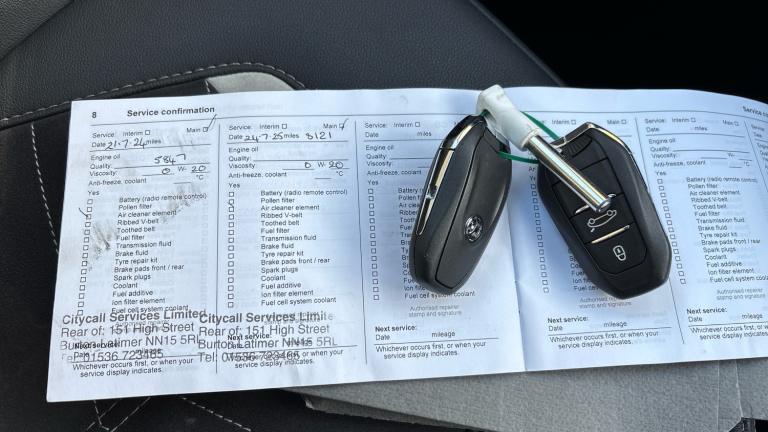 8 Service confirmation
Service: Interim ☐ Main ☐
Date 21.7.24 miles
Engine oil 5847
Quality:
Viscosity: 0 W- 20
Anti-freeze, coolant °C
Yes
Battery (radio remote control)
Pollen filter
Air cleaner element
Ribbed V-belt
Toothed belt
Fuel filter
Transmission fluid
Brake fluid
Tyre repair kit
Brake pads front / rear
Spark plugs
Coolant
Fuel additive
Ion filter element
Fuel cell system coolant
Citycall Services Limited
Rear of: 151 High Street
Burton Latimer NN15 5RL
01536 723465
Next service:
Whichever occurs first, or when your
service display indicates.
Service: Interim ☐ Main ☐
Date 24.7.25 miles 8121
Engine oil
Quality:
Viscosity: 0 W- 20
Anti-freeze, coolant °C
Yes
Battery (radio remote control)
Pollen filter
Air cleaner element
Ribbed V-belt
Toothed belt
Fuel filter
Transmission fluid
Brake fluid
Tyre repair kit
Brake pads front / rear
Spark plugs
Coolant
Fuel additive
Ion filter element
Fuel cell system coolant
Citycall Services Limi
Rear of: 151 High Street
Burton Latimer NN15 5RL
Tel: 01536 723465
Next service:
Whichever occurs first, or when your
service display indicates.
Service: Interim ☐ Main ☐
Date miles
Engine oil
Quality:
Viscosity:
Anti-freeze, coolant
Yes
Battery
Pollen f
Air clea
Ribbed
Toothed
Fuel filte
Transm
Brake fl
Tyre rep
Brake pads front / rear
Spark plugs
Coolant
Fuel additive
Ion filter element
Fuel cell system coolant
Authorised repairer
stamp and signature
Next service:
Date mileage
Whichever occurs first, or when your
service display indicates.
Main ☐
miles
Fuel cell system coolant
Authorised repairer
stamp and signature
Next service:
Date mileage
Whichever occurs first, or when your
service display indicates.
Service: Interim ☐ Main ☐
Date miles
Engine oil
Quality:
Viscosity: W-
Anti-freeze, coolant °C
Yes
Battery (radio remote control)
Pollen filter
Air cleaner element
Ribbed V-belt
Toothed belt
Fuel filter
Transmission fluid
Brake fluid
Tyre repair kit
Brake pads front / rear
Spark plugs
Coolant
Fuel additive
Ion filter element
Fuel cell system coolant
Authorised repairer
stamp and signature
Next service:
Date mileage
Whichever occurs first, or when your
service display indicates.
Service co